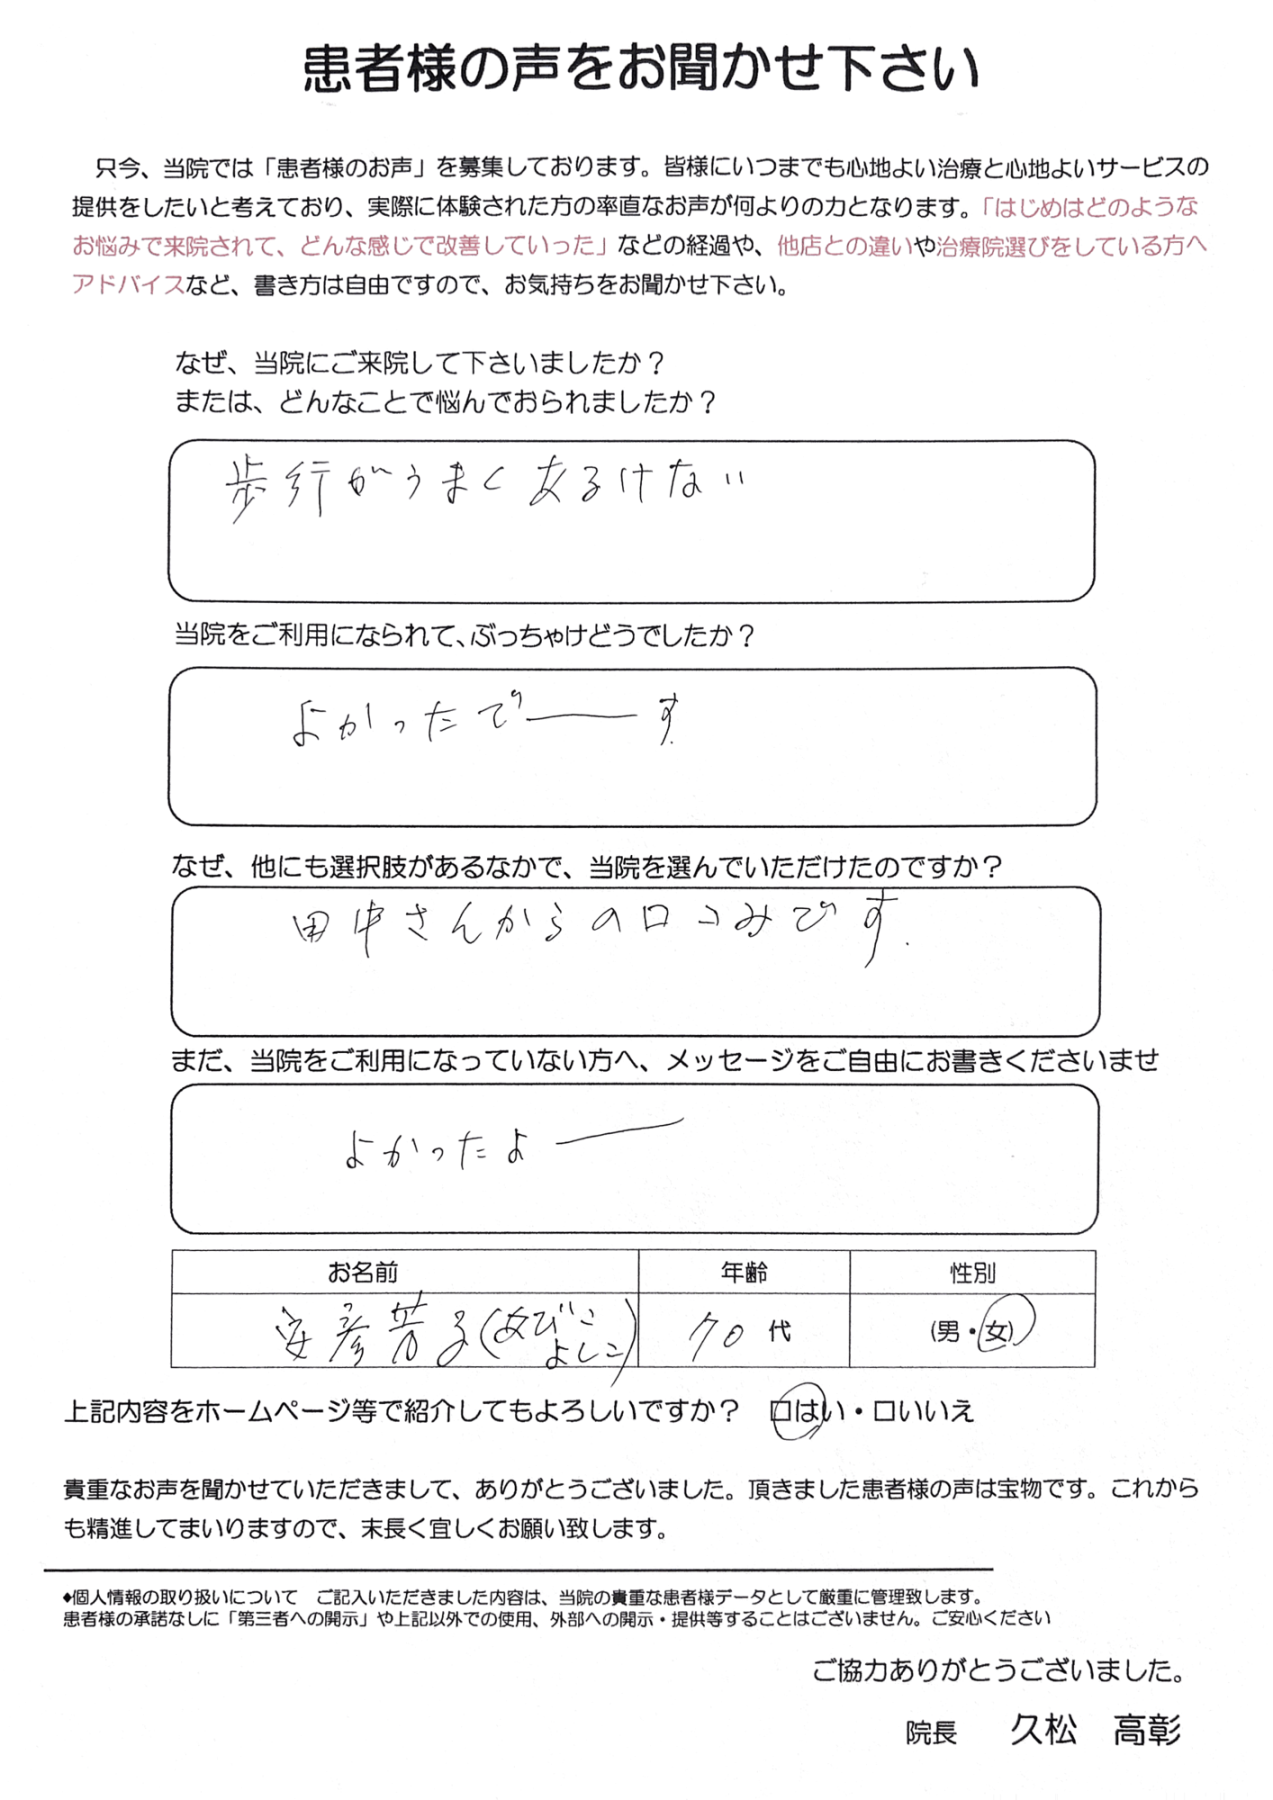 患者様の声をお聞かせ下さい
只今、当院では「患者様のお声」を募集しております。皆様にいつまでも心地よい治療と心地よいサービスの
提供をしたいと考えており、実際に体験された方の率直なお声が何よりの力となります。「はじめはどのような
お悩みで来院されて、どんな感じで改善していった」などの経過や、他店との違いや治療院選びをしている方へ
アドバイスなど、書き方は自由ですので、お気持ちをお聞かせ下さい。
なぜ、当院にご来院して下さいましたか？
または、どんなことで悩んでおられましたか？
歩行がうまくあるけない
当院をご利用になられて、ぶっちゃけどうでしたか？
よかったで――す
なぜ、他にも選択肢があるなかで、当院を選んでいただけたのですか？
田中さんからの口コみです.
まだ、当院をご利用になっていない方へ、メッセージをご自由にお書きくださいませ
よかったよ――
お名前 年齢 性別
安彦芳子(あびこ 70 代 (男・女)
よしこ)
上記内容をホームページ等で紹介してもよろしいですか？ 口はい・口いいえ
貴重なお声を聞かせていただきまして、ありがとうございました。頂きました患者様の声は宝物です。これから
も精進してまいりますので、末長く宜しくお願い致します。
◆個人情報の取り扱いについて ご記入いただきました内容は、当院の貴重な患者様データとして厳重に管理致します。
患者様の承諾なしに「第三者への開示」や上記以外での使用、外部への開示・提供等することはございません。ご安心ください
ご協力ありがとうございました。
院長 久松 高彰